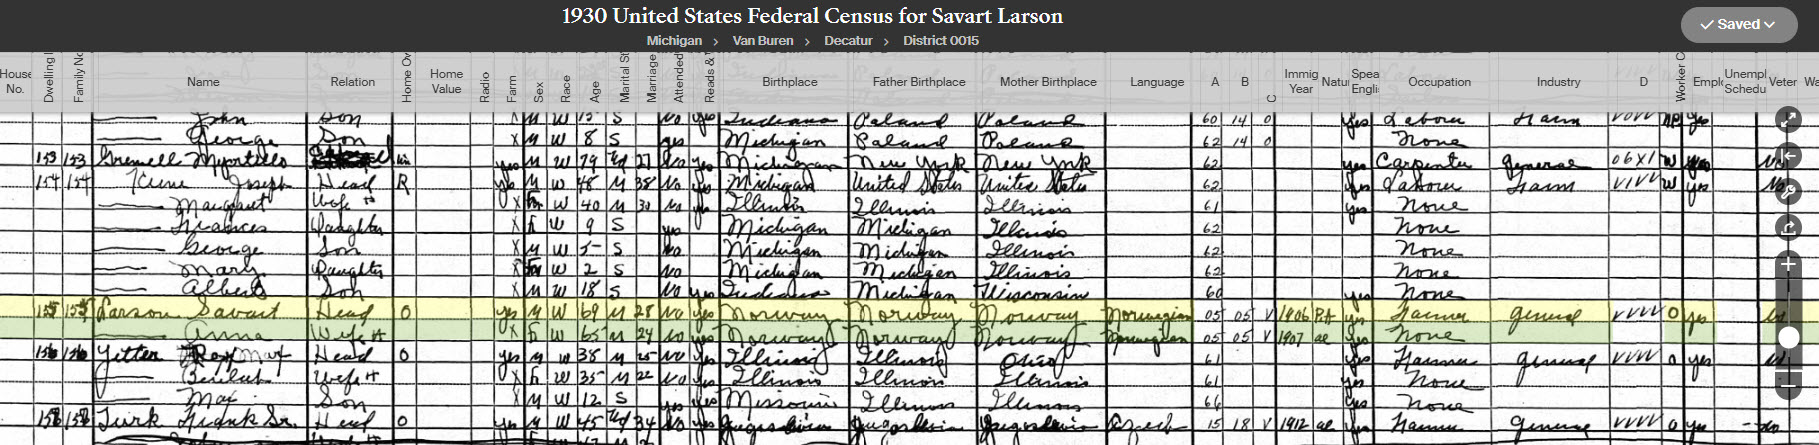 1930 United States Federal Census for Savart Larson
✓ Saved
Michigan > Van Buren > Decatur > District 0015
House No. Dwelling Family No Name Relation Home Ow Home Value Radio Farm Sex Race Age Marital St Marriage Attended Reads & Birthplace Father Birthplace Mother Birthplace Language A B C Immig Year Natu Spea Engli Occupation Industry D Worker C Emplo Unempl Schedu Veter Wa
John Son X M W 15 S No yes Indiana Poland Poland 60 14 0 yes Labour Farm VOVV NP yes
George Son X M W 8 S yes Michigan Poland Poland 62 14 0 None
153 153 Myrtillo yes M W 79 27 No yes Michigan New York New York 62 yes Carpenter general W
154 154 Joseph Head R yes M W 48 M 38 No yes Michigan United States United States 62 yes Labour Farm VIVV W yes No
Margaret Wife H X W 40 M 30 No yes Illinois Illinois Illinois 61 yes None
Frances Daughter X W 9 S yes Michigan Michigan Illinois 62 None
George Son X M W 5 S No Michigan Michigan Illinois 62 None
Mary Daughter X W 2 S No Michigan Michigan Illinois 62 None
Albert Son X M W 18 S No yes Indiana Michigan Wisconsin 60 yes None
155 155 Larson Savart Head O yes M W 69 M 28 No yes Norway Norway Norway Norwegian 05 05 V 1906 PA yes Farmer general VVVV O yes
Anna Wife H X W 65 M 24 No yes Norway Norway Norway Norwegian 05 05 V 1907 al yes None
156 156 Yetter Rex Max Head O yes M W 38 M 25 No yes Illinois Illinois Ohio 61 yes Farmer general VVVV O yes
Beulah Wife H X W 35 M 22 No yes Illinois Illinois Illinois 61 yes None
Max Son X M W 12 S yes yes Missouri Illinois Illinois yes None
Turk Frank Sr. Head O yes M W 45 34 No yes Jugoslavia Jugoslavia Jugoslavia 15 18 V 1912 al yes Farmer general VVVV O yes